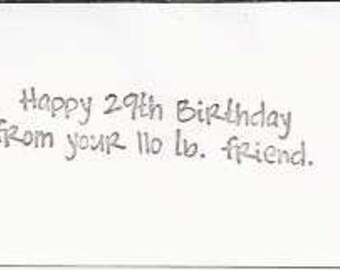 Happy 29th Birthday
from your 110 lb. friend.